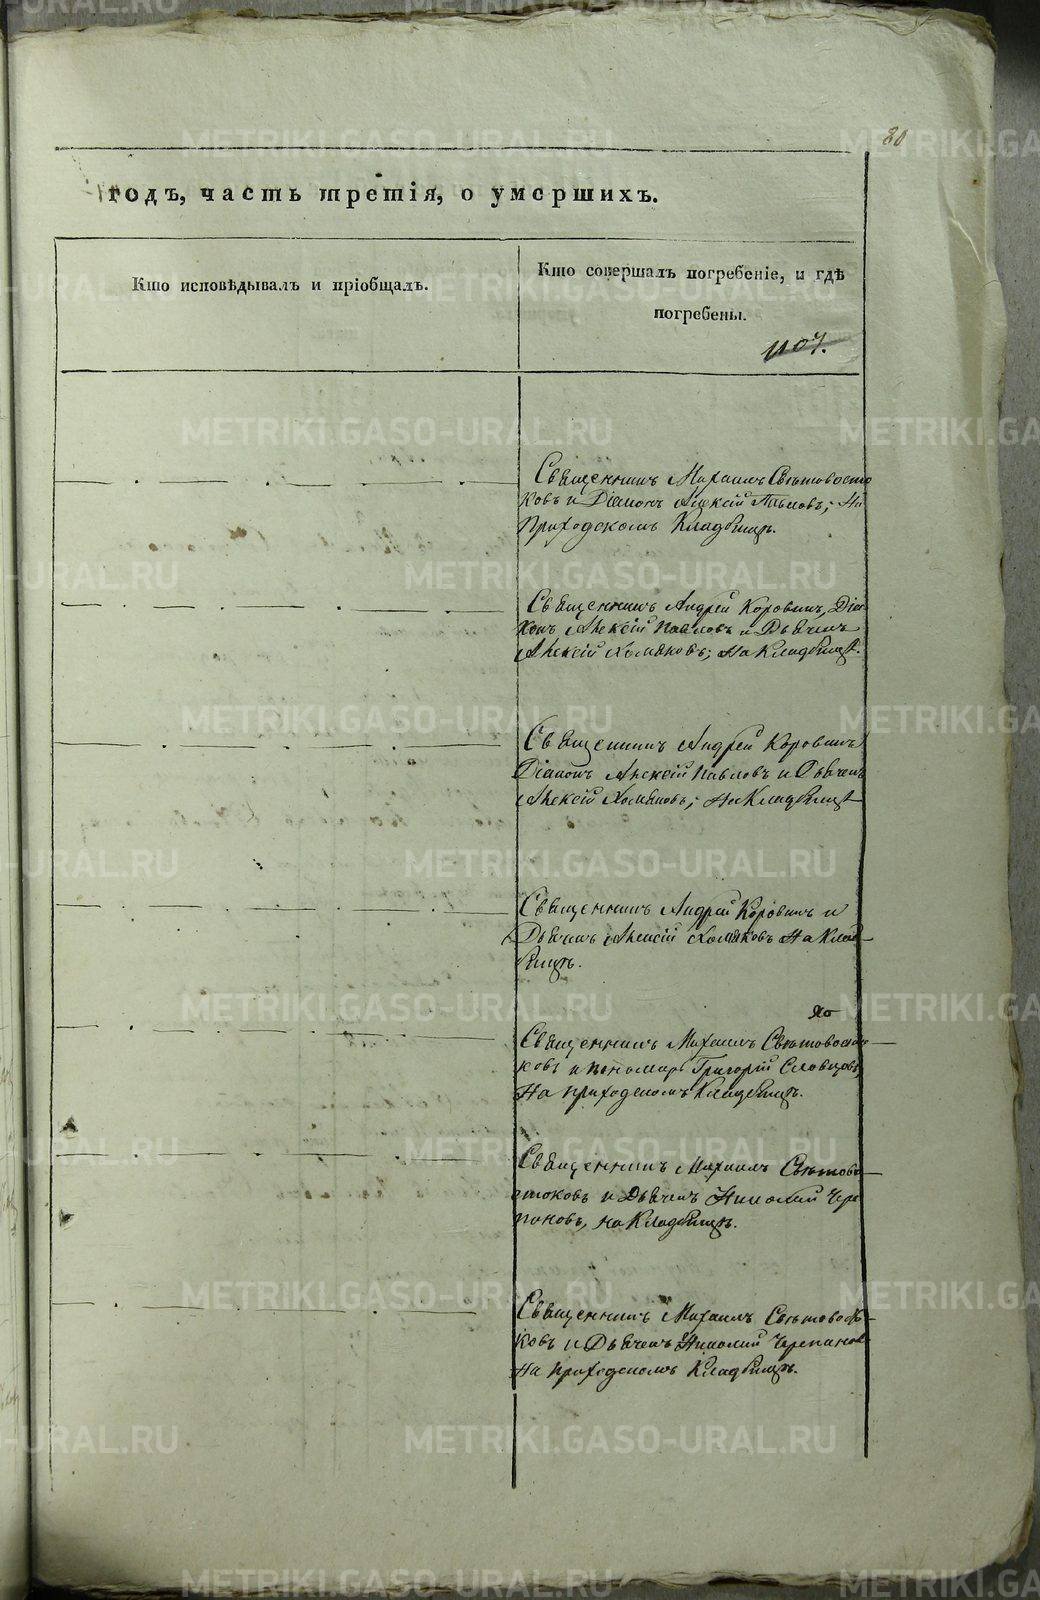 80
годъ, часть третія, о умершихъ.
Кто исповѣдывалъ и пріобщалъ.
Кто совершалъ погребеніе, и гдѣ
погребены.
1107.
Священникъ Михаилъ Свѣтовосто
ковъ и Діаконъ Алексій Павловъ; На
Приходскомъ Кладбищѣ.
Священникъ Андрей Коровинъ, Діа
конъ Алексій Павловъ и Дьячекъ
Алексій Хомяковъ; На Кладбищѣ.
Священникъ Андрей Коровинъ
Діаконъ Алексій Павловъ и Дьячекъ
Алексій Хомяковъ; На Кладбищѣ
Священникъ Андрей Коровинъ и
Дьячекъ Алексій Хомяковъ На Клад
бищѣ.
Священникъ Михаилъ Свѣтовосто
ковъ и пономарь Григорій Словцовъ,
На приходскомъ Кладбищѣ.
Священникъ Михаилъ Свѣтово
стоковъ и Дьячекъ Николай Чере
пановъ, на Кладбищѣ.
Священникъ Михаилъ Свѣтовосто
ковъ и Дьячекъ Николай Черепановъ
На приходскомъ Кладбищѣ.
METRIKI.GASO-URAL.RU